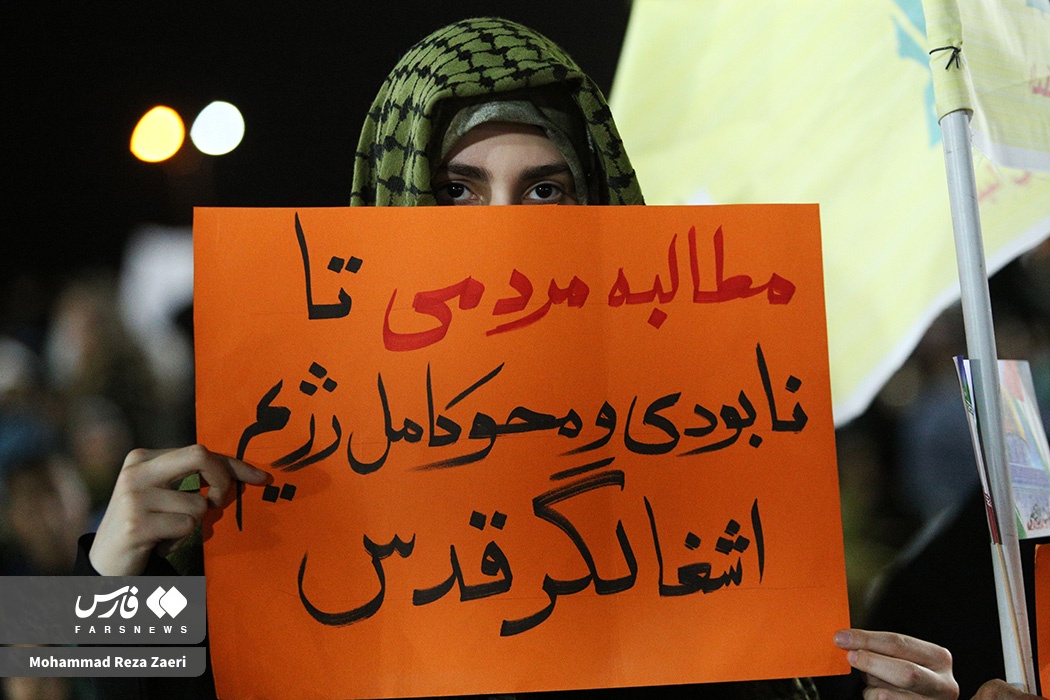 مطالبه مردمی تا
نابودی و محو کامل رژیم
اشغالگر قدس
فارس
FARSNEWS
Mohammad Reza Zaeri